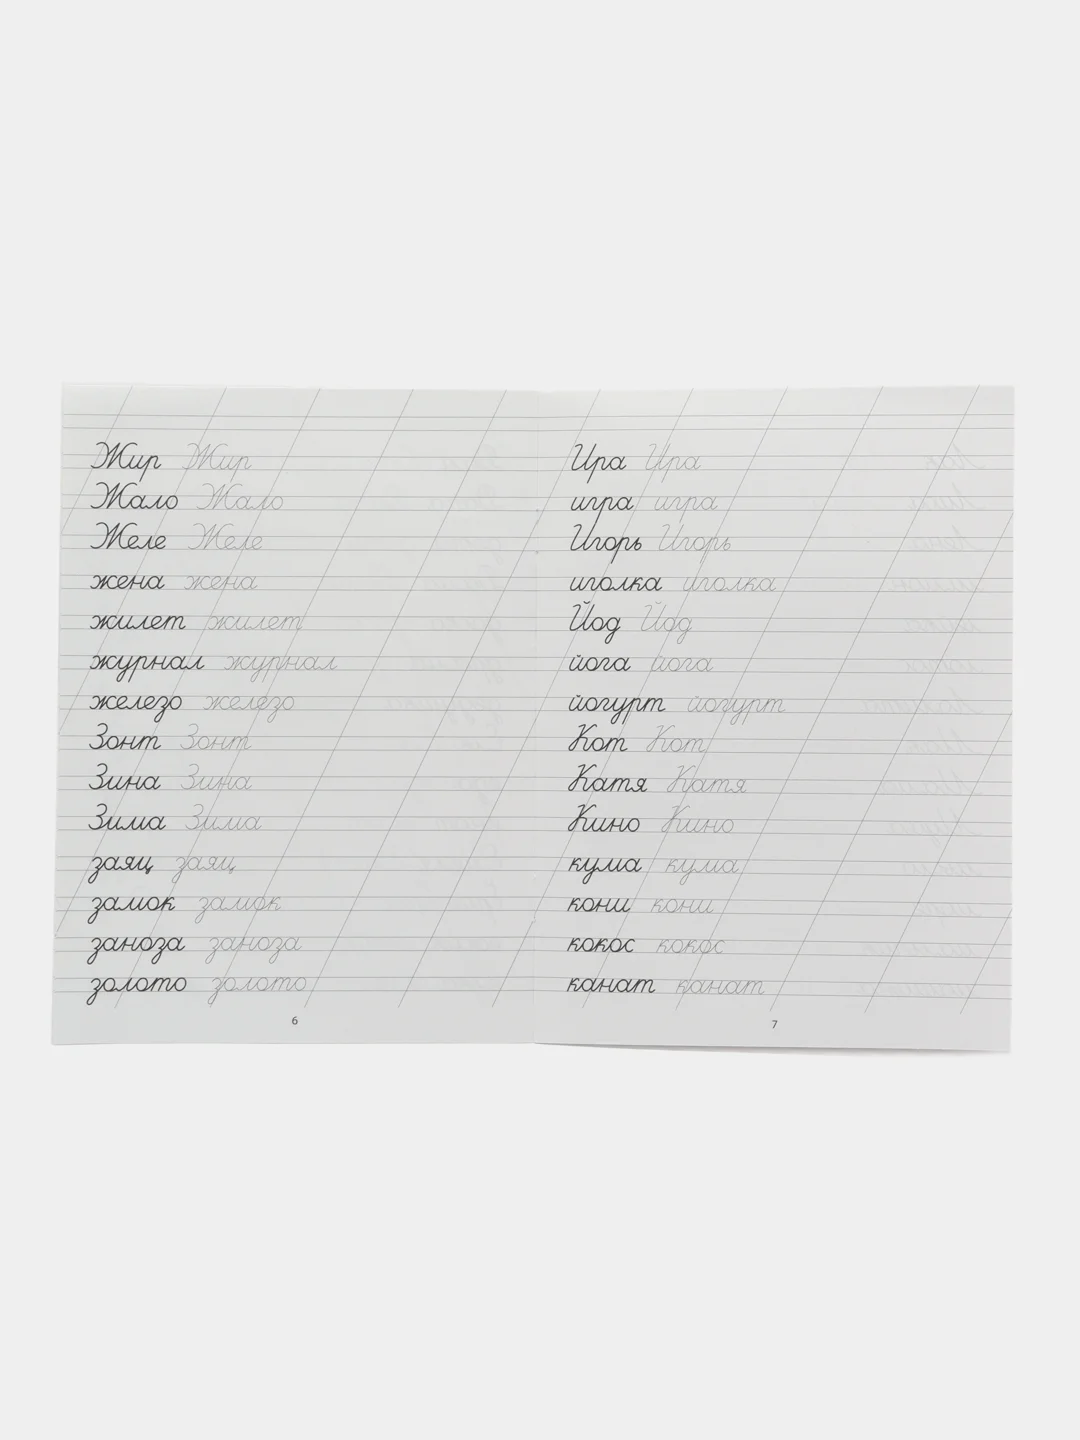 Жир Жир
Жало Жало
Желе Желе
жена жена
жилет жилет
журнал журнал
железо железо
Зонт Зонт
Зина Зина
Зима Зима
заяц заяц
замок замок
заноза заноза
золото золото
6
Ира Ира
игра игра
Игорь Игорь
иголка иголка
Йод Йод
йога йога
йогурт йогурт
Кот Кот
Катя Катя
Кино Кино
кума кума
кони кони
кокос кокос
канат канат
7